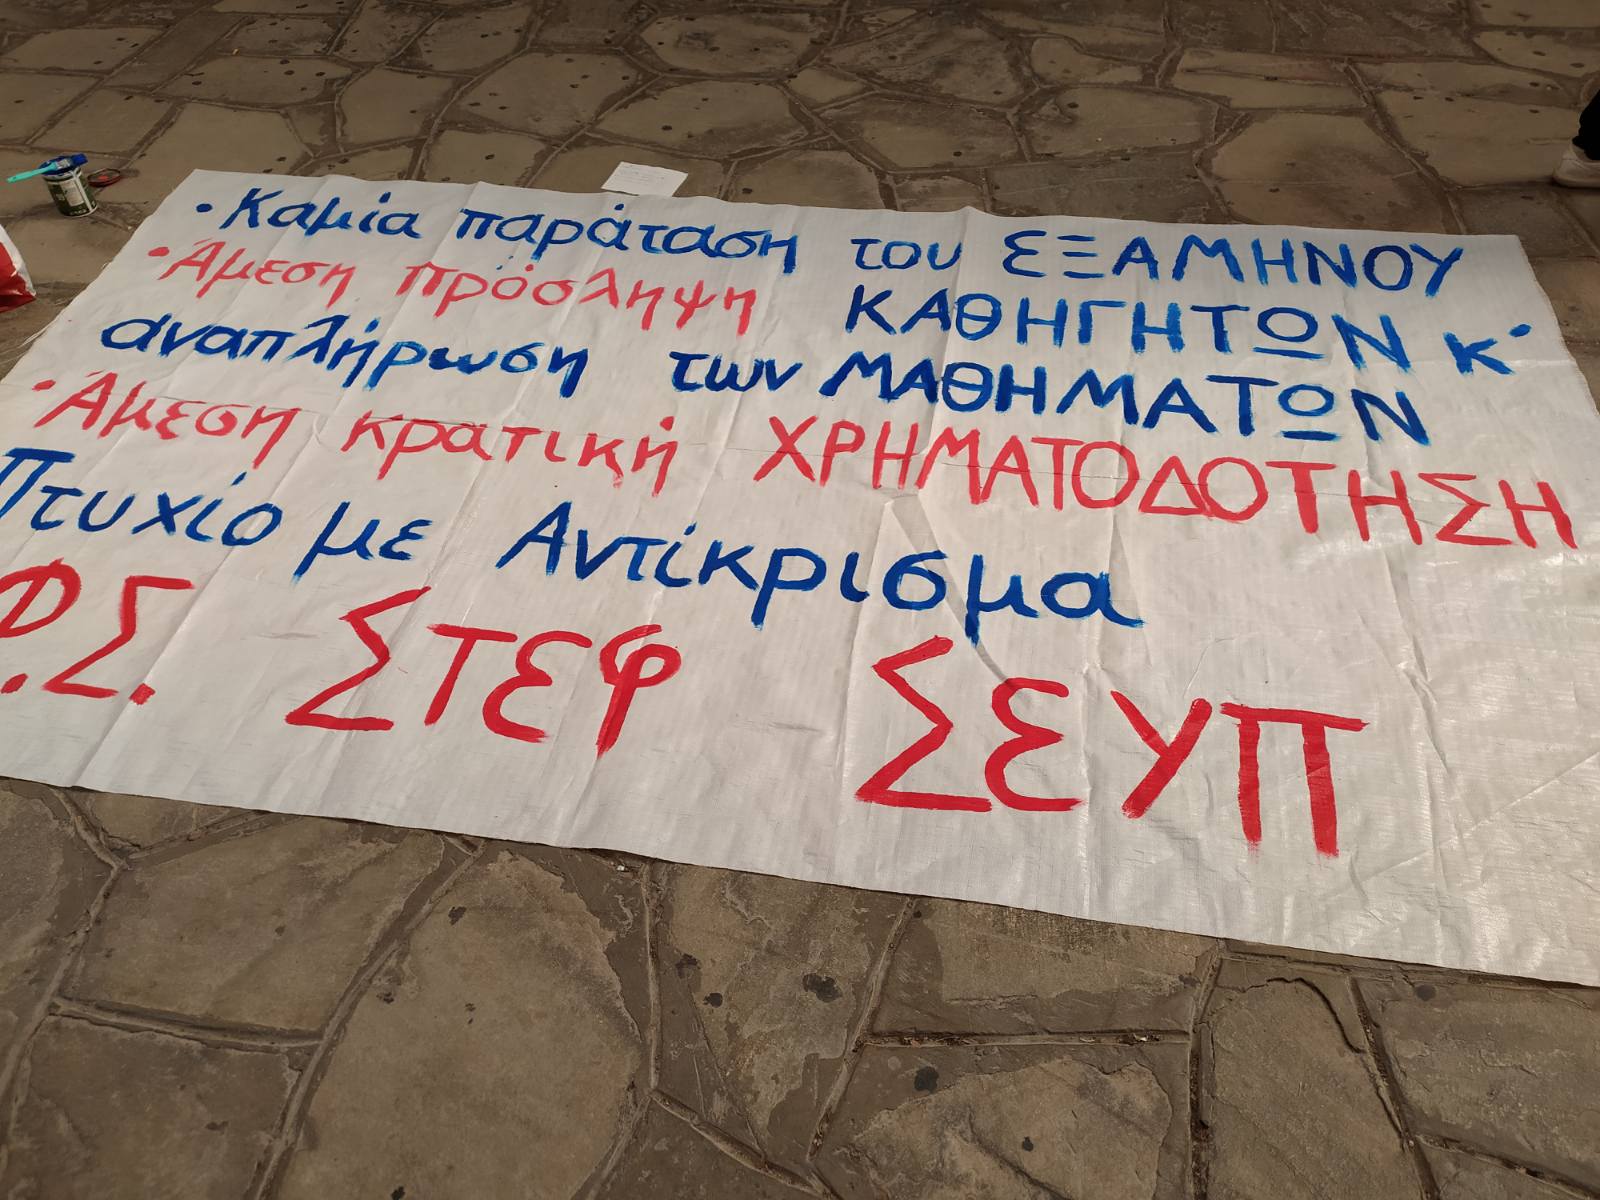 • Καμία παράταση του ΕΞΑΜΗΝΟΥ
• Άμεση πρόσληψη ΚΑΘΗΓΗΤΩΝ κ'
αναπλήρωση των ΜΑΘΗΜΑΤΩΝ
• Άμεση κρατική ΧΡΗΜΑΤΟΔΟΤΗΣΗ
Πτυχίο με Αντίκρισμα
Φ.Σ. ΣΤΕΦ ΣΕΥΠ